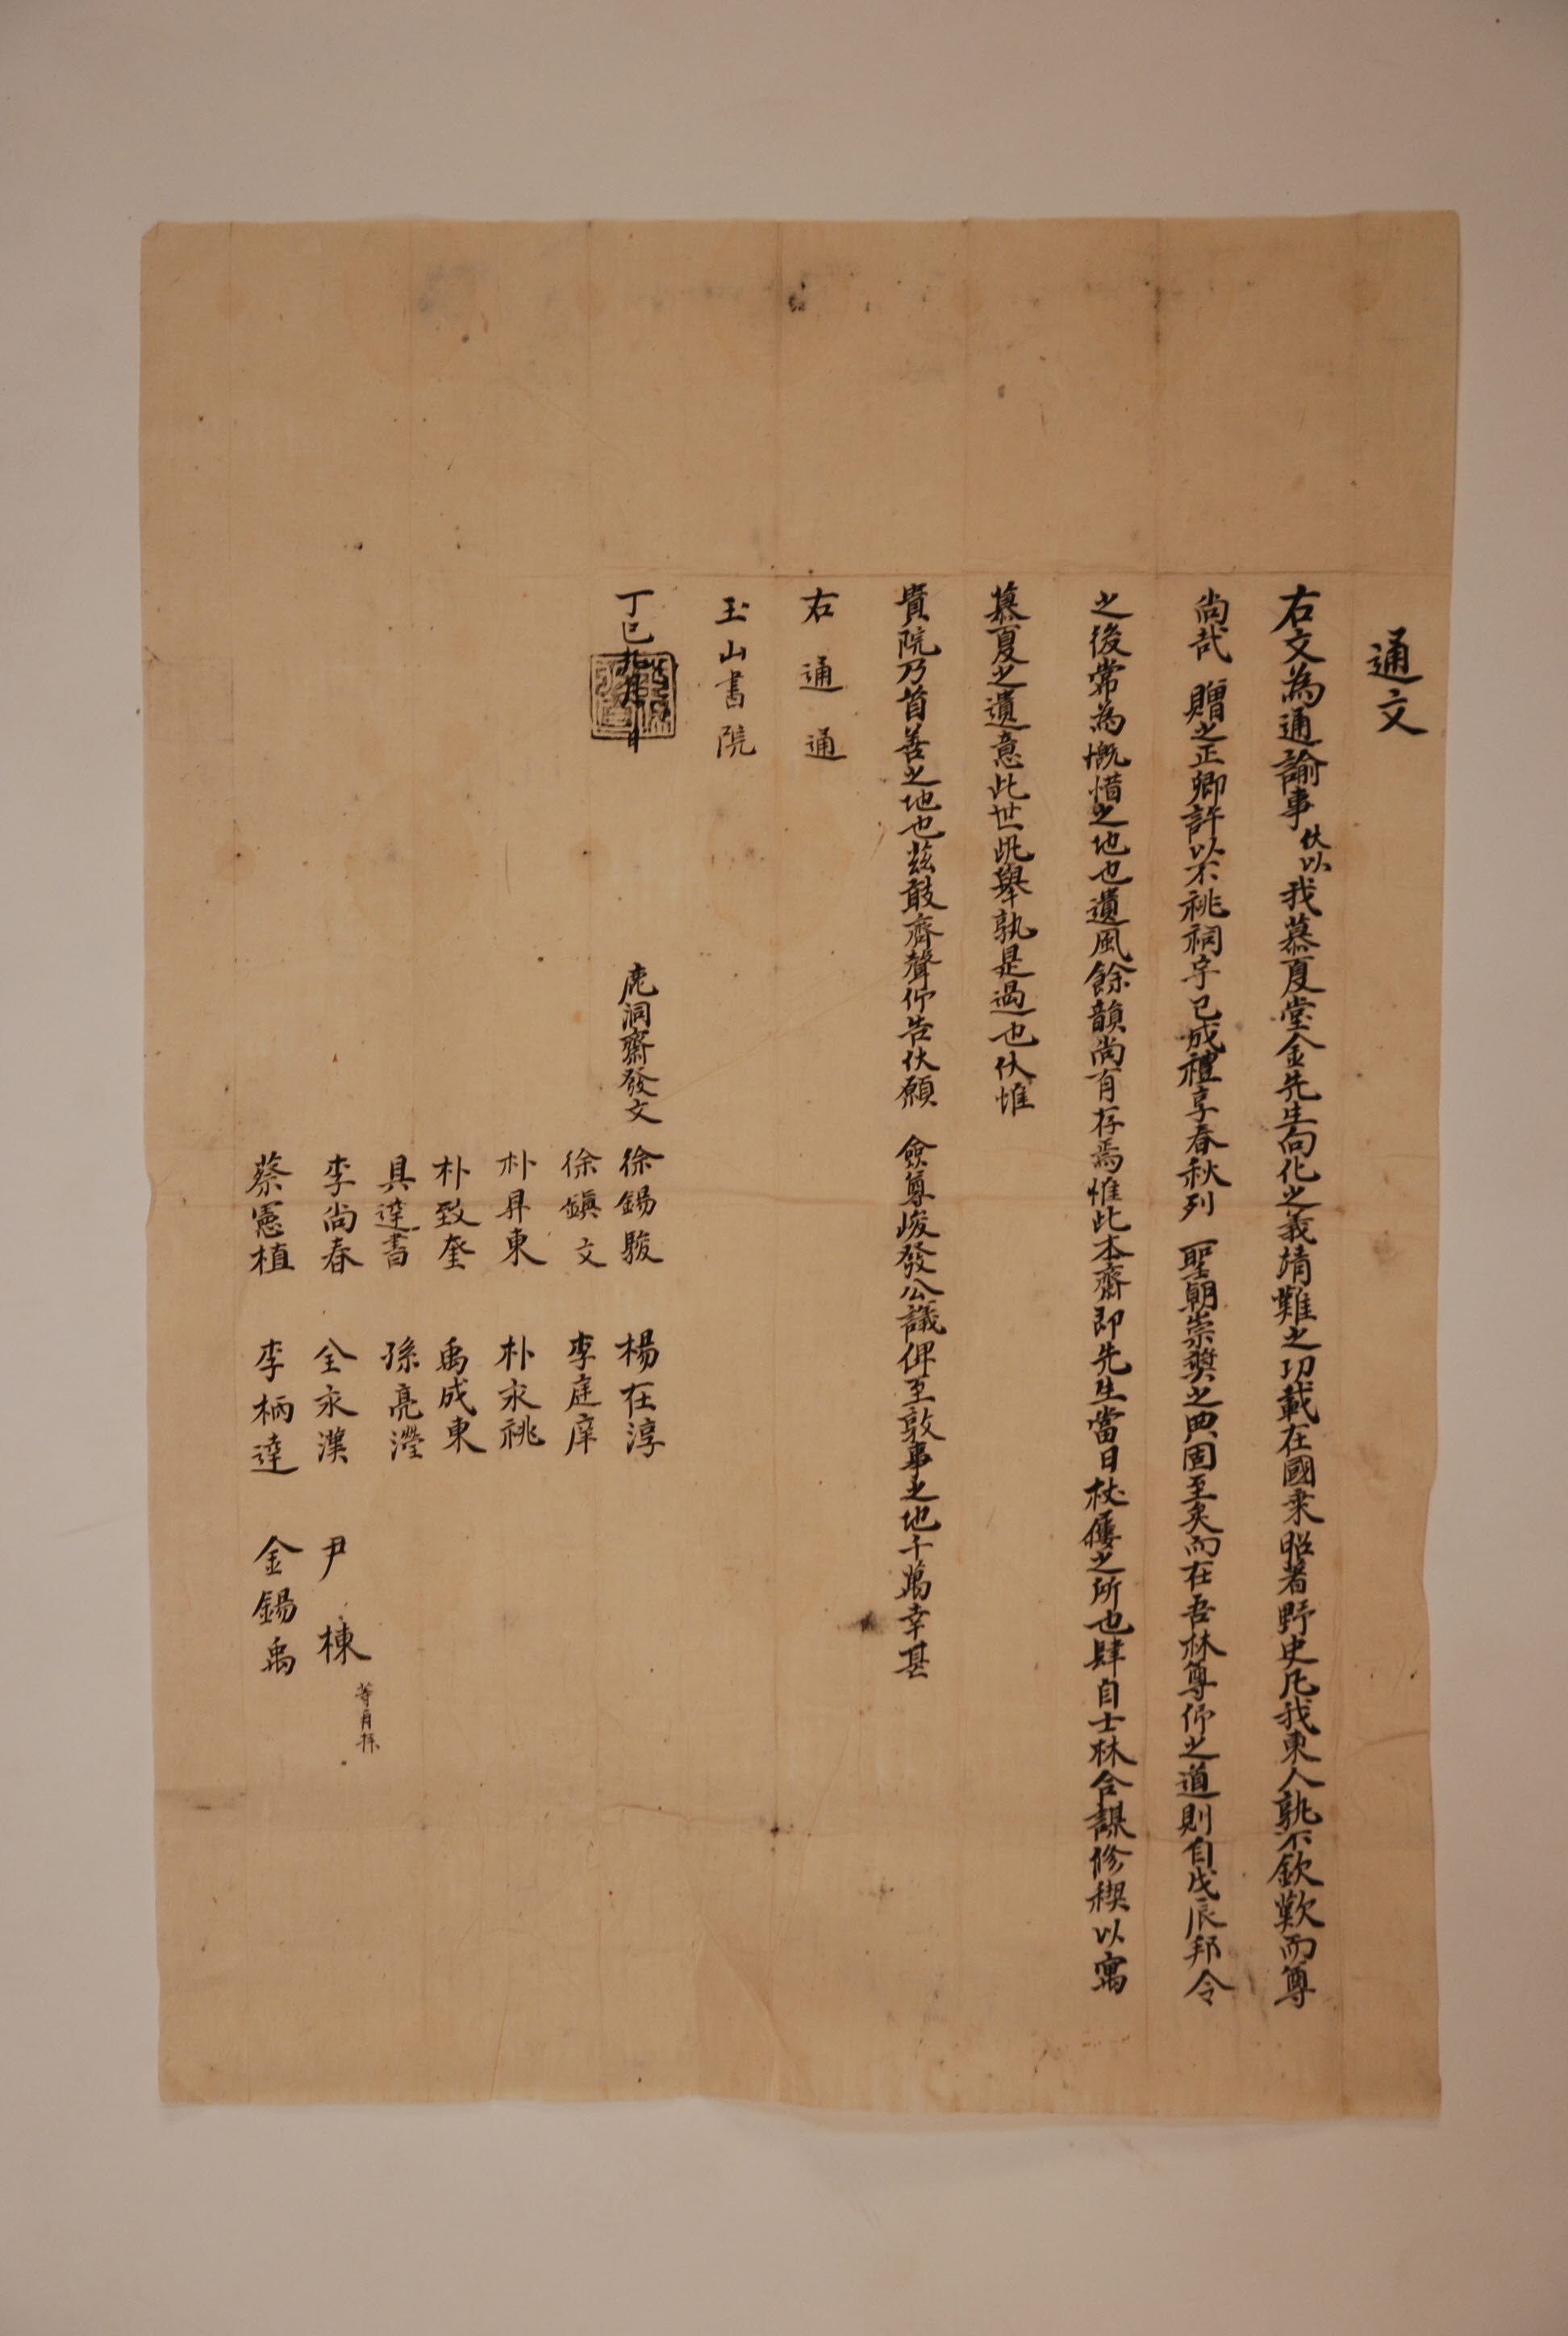 通文
右文為通諭事伏以我慕夏堂金先生向化之義靖難之功載在國乘昭著野史凡我東人孰不欽歎而尊
尙哉 贈之正卿許以不祧祠宇已成禮享春秋列 聖朝崇奬之典固至矣而在吾林尊仰之道則自戊辰邦令
之後常為慨惜之地也遺風餘韻尙有存焉惟此本齋卽先生當日杖屨之所也肆自士林合謀修稧以寓
慕夏之遺意此世此擧孰是過也伏惟
貴院乃首善之地也玆敢齊聲仰告伏願 僉尊峻發公議俾至敦事之地千萬幸甚
右通通
玉山書院
丁巳九月 日
鹿洞齋發文 徐錫駿 楊在淳
徐鎭文 李庭庠
朴昇東 朴永祧
朴致奎 禹成東
具達書 孫亮瀅
李尙春 全永漢 尹棟
蔡憲植 李柄達 金錫禹
等再拜